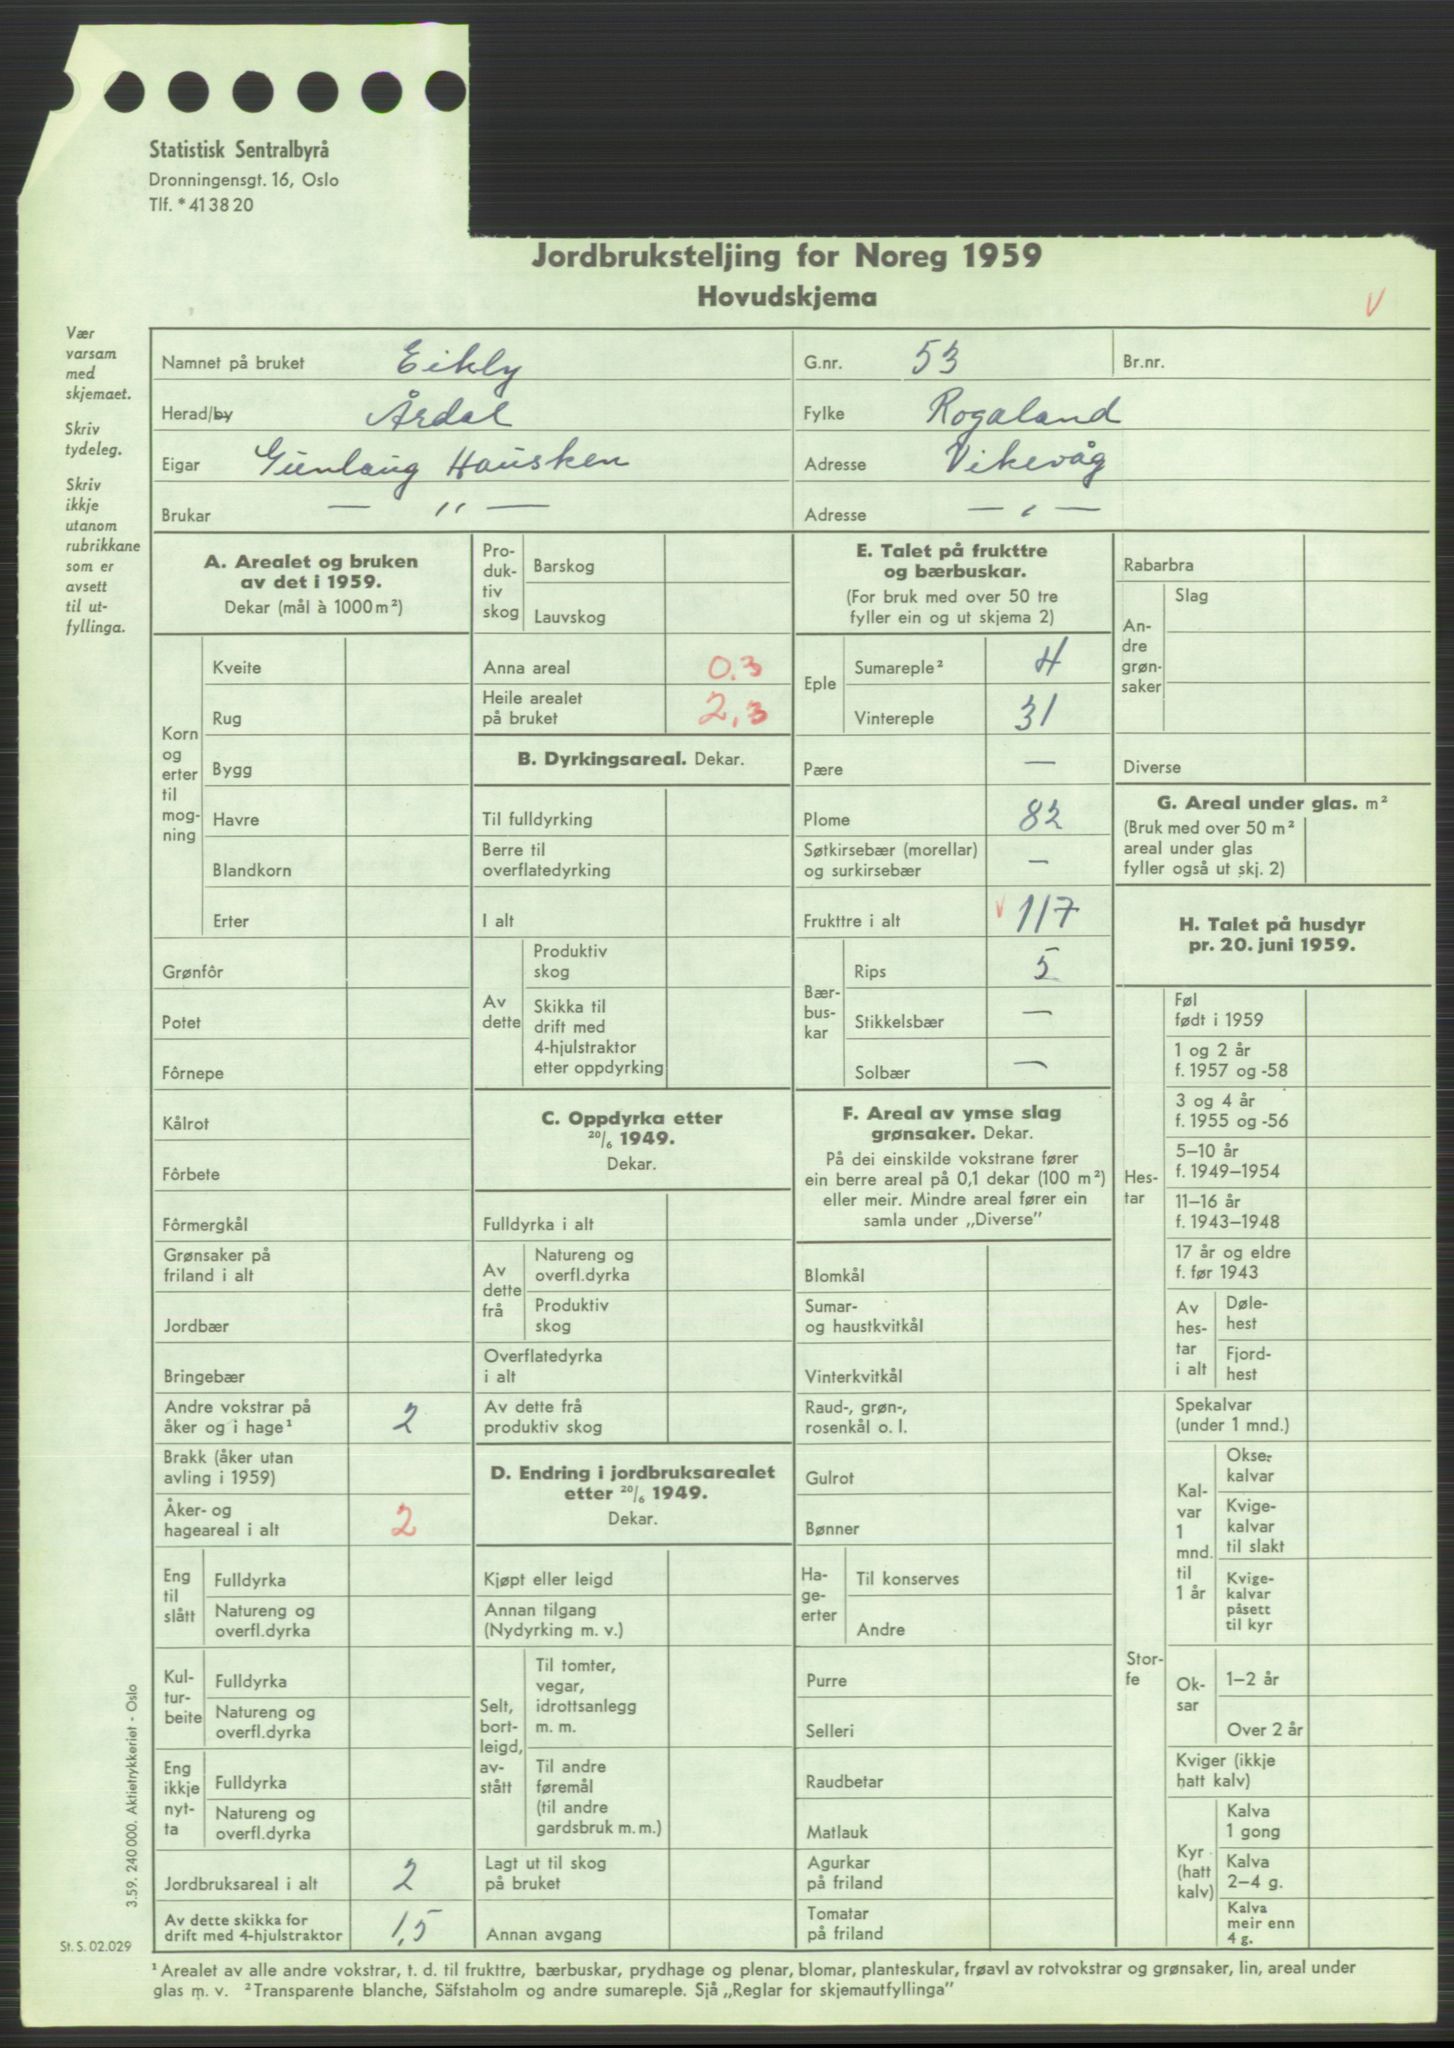 Statistisk Sentralbyrå
Dronningensgt. 16, Oslo
Tlf. * 41 38 20
Jordbruksteljing for Noreg 1959
Hovudskjema
V
Vær
varsam
med
skjemaet.
Skriv
tydeleg.
Skriv
ikkje
utanom
rubrikkane
som er
avsett
til ut-
fyllinga.
Namnet på bruket Eikly
G.nr. 53 Br.nr.
Herad/by Årdal
Fylke Rogaland
Eigar Gunlaug Hausken
Adresse Vikevåg
Brukar — " —
Adresse — " —
A. Arealet og bruken
av det i 1959.
Dekar (mål à 1000 m²)
Korn
og
erter
til
mog-
ning
Kveite
Rug
Bygg
Havre
Blandkorn
Erter
Grønfôr
Potet
Fôrnepe
Kålrot
Fôrbete
Fôrmergkål
Grønsaker på
friland i alt
Jordbær
Bringebær
Andre vokstrar på
åker og i hage¹ 2
Brakk (åker utan
avling i 1959)
Åker- og
hageareal i alt 2
Eng
til
slått
Fulldyrka
Natureng og
overfl.dyrka
Kul-
tur-
beite
Fulldyrka
Natureng og
overfl.dyrka
Eng
ikkje
nyt-
ta
Fulldyrka
Natureng og
overfl.dyrka
Jordbruksareal i alt 2
Av dette skikka for
drift med 4-hjulstraktor 1,5
Pro-
duk-
tiv
skog
Barskog
Lauvskog
Anna areal 0.3
Heile arealet
på bruket 2,3
B. Dyrkingsareal. Dekar.
Til fulldyrking
Berre til
overflatedyrking
I alt
Av
dette
Produktiv
skog
Skikka til
drift med
4-hjulstraktor
etter oppdyrking
C. Oppdyrka etter
20/6 1949.
Dekar.
Fulldyrka i alt
Av
dette
frå
Natureng og
overfl.dyrka
Produktiv
skog
Overflatedyrka
i alt
Av dette frå
produktiv skog
D. Endring i jordbruksarealet
etter 20/6 1949.
Dekar.
Kjøpt eller leigd
Annan tilgang
(Nydyrking m. v.)
Selt,
bort-
leigd,
av-
stått
Til tomter,
vegar,
idrottsanlegg
m. m.
Til andre
føremål
(til andre
gardsbruk m. m.)
Lagt ut til skog
på bruket
Annan avgang
E. Talet på frukttre
og bærbuskar.
(For bruk med over 50 tre
fyller ein og ut skjema 2)
Eple
Sumareple² 4
Vintereple 31
Pære —
Plome 82
Søtkirsebær (morellar)
og surkirsebær —
Frukttre i alt V 117
Bær-
bus-
kar
Rips 5
Stikkelsbær —
Solbær —
F. Areal av ymse slag
grønsaker. Dekar.
På dei einskilde vokstrane fører
ein berre areal på 0,1 dekar (100 m²)
eller meir. Mindre areal fører ein
samla under „Diverse”
Blomkål
Sumar-
og haustkvitkål
Vinterkvitkål
Raud-, grøn-,
rosenkål o. l.
Gulrot
Bønner
Ha-
ge-
erter
Til konserves
Andre
Purre
Selleri
Raudbetar
Matlauk
Agurkar
på friland
Tomatar
på friland
Rabarbra
An-
dre
grøn-
saker
Slag
Diverse
G. Areal under glas. m²
(Bruk med over 50 m²
areal under glas
fyller også ut skj. 2)
H. Talet på husdyr
pr. 20. juni 1959.
Hes-
tar
Føl
født i 1959
1 og 2 år
f. 1957 og -58
3 og 4 år
f. 1955 og -56
5–10 år
f. 1949–1954
11–16 år
f. 1943–1948
17 år og eldre
f. før 1943
Av
hes-
tar
i alt
Døle-
hest
Fjord-
hest
Stor-
fe
Spekalvar
(under 1 mnd.)
Kal-
var
1
mnd.
til
1 år
Okse-
kalvar
Kvige-
kalvar
til slakt
Kvige-
kalvar
påsett
til kyr
Ok-
sar
1–2 år
Over 2 år
Kviger (ikkje
hatt kalv)
Kyr
(hatt
kalv)
Kalva
1 gong
Kalva
2–4 g.
Kalva
meir enn
4 g.
3.59. 240 000. Aktietrykkeriet - Oslo
St. S. 02.029
¹ Arealet av alle andre vokstrar, t. d. til frukttre, bærbuskar, prydhage og plenar, blomar, planteskular, frøavl av rotvokstrar og grønsaker, lin, areal under
glas m. v. ² Transparente blanche, Säfstaholm og andre sumareple. Sjå „Reglar for skjemautfyllinga”